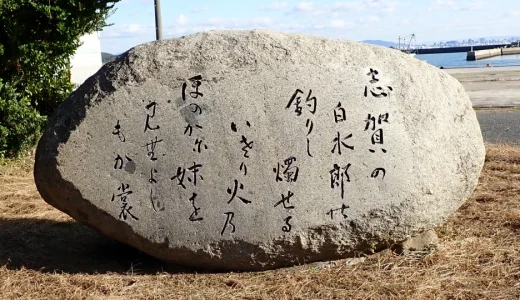 志賀の
白水郎能
釣りし
燭せる
いさり火乃
ほのか尓妹を
見無よし
もか裳